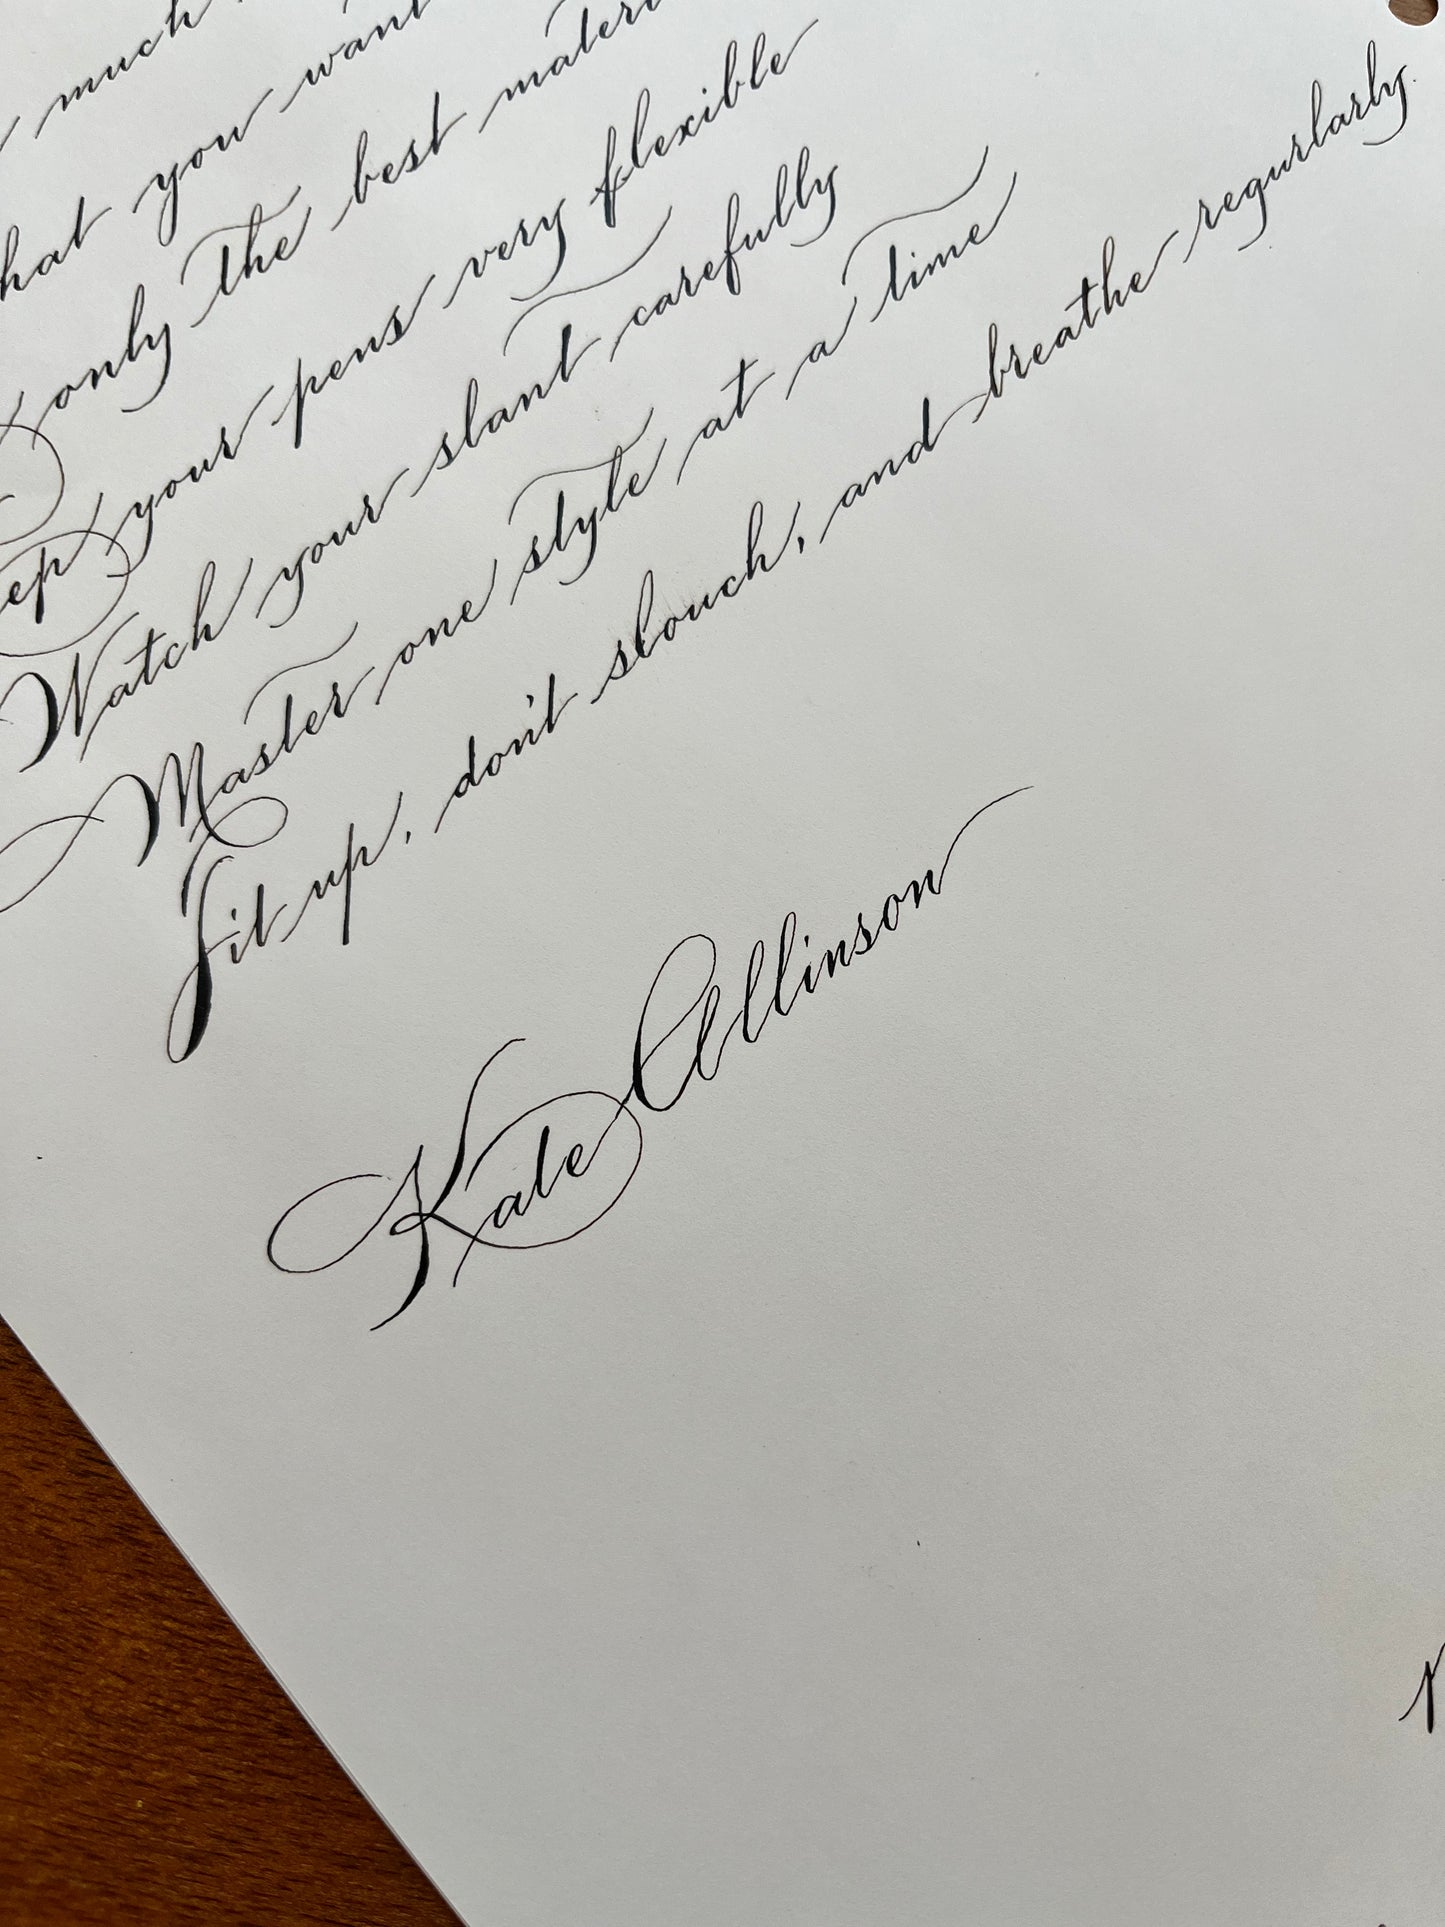 much
hat you want
only the best materi
ep your pens very flexible
Watch your slant carefully
Master one style at a time
Sit up, don't slouch, and breathe regurlarly.
Kate Allinson